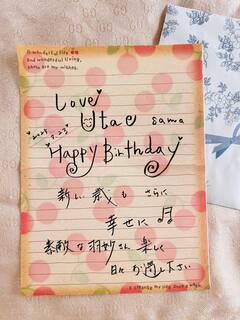 A wonderful life
and wonderful living,
these are my wishes.
Love
Utae sama
2025
9.23
Happy Birthday
新しい歳も さらに
幸せに
素敵な 羽妙さん 楽しく
日々 お過し下さい